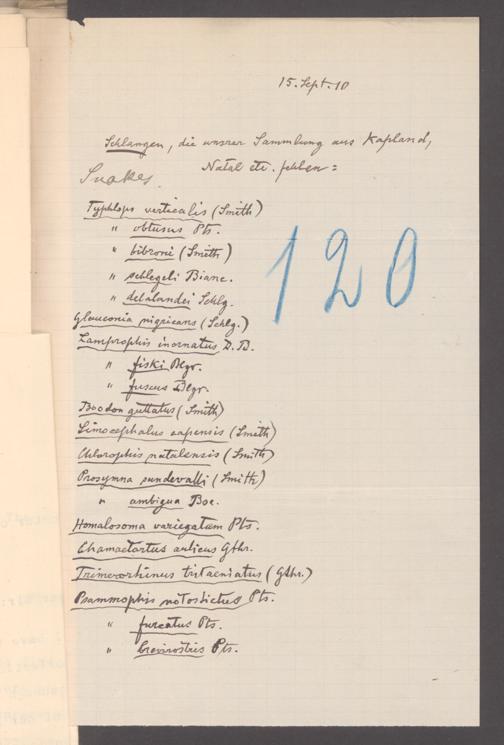 15. Sept. 10
Schlangen, die unsrer Sammlung aus Kapland,
Natal etc. fehlen:
Snakes.
120
Typhlops verticalis (Smith)
" obtusus Pts.
" bibroni (Smith)
" schlegeli Bianc.
" delalandei Schlg.
Glauconia nigricans (Schlg.)
Lamprophis inornatus D. B.
" fiski Blgr.
" fuscus Blgr.
Boodon guttatus (Smith)
Simocephalus capensis (Smith)
Chlorophis natalensis (Smith)
Prosymna sundevalli (Smith)
" ambigua Boc.
Homalosoma variegatum Pts.
Chamaetortus aulicus Gthr.
Trimerorhinus tritaeniatus (Gthr.)
Psammophis notostictus Pts.
" furcatus Pts.
" brevirostris Pts.